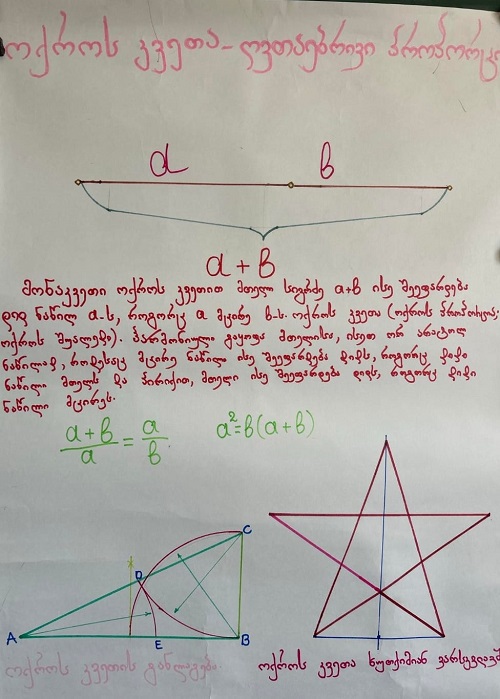 ოქროს კვეთა - ღვთაებრივი პროპორცია
a b
a + b
მონაკვეთი ოქროს კვეთით მთელი სიგრძე a+b ისე შეეფარდება
დიდ ნაწილ a-ს, როგორც a მცირე b-ს. ოქროს კვეთა (ოქროს პროპორცია;
ოქროს შუალედი). ჰარმონიული გაყოფა მთელისა, ისეთ ორ არატოლ
ნაწილად, როდესაც მცირე ნაწილი ისე შეეფარდება დიდს, როგორც დიდი
ნაწილი მთელს და პირიქით, მთელი ისე შეეფარდება დიდს, როგორც დიდი
ნაწილი მცირეს.
a+b/a = a/b. a²=b(a+b)
C
D
A E B
ოქროს კვეთის განლაგება ოქროს კვეთა ხუთქიმიან ვარსკვლავში